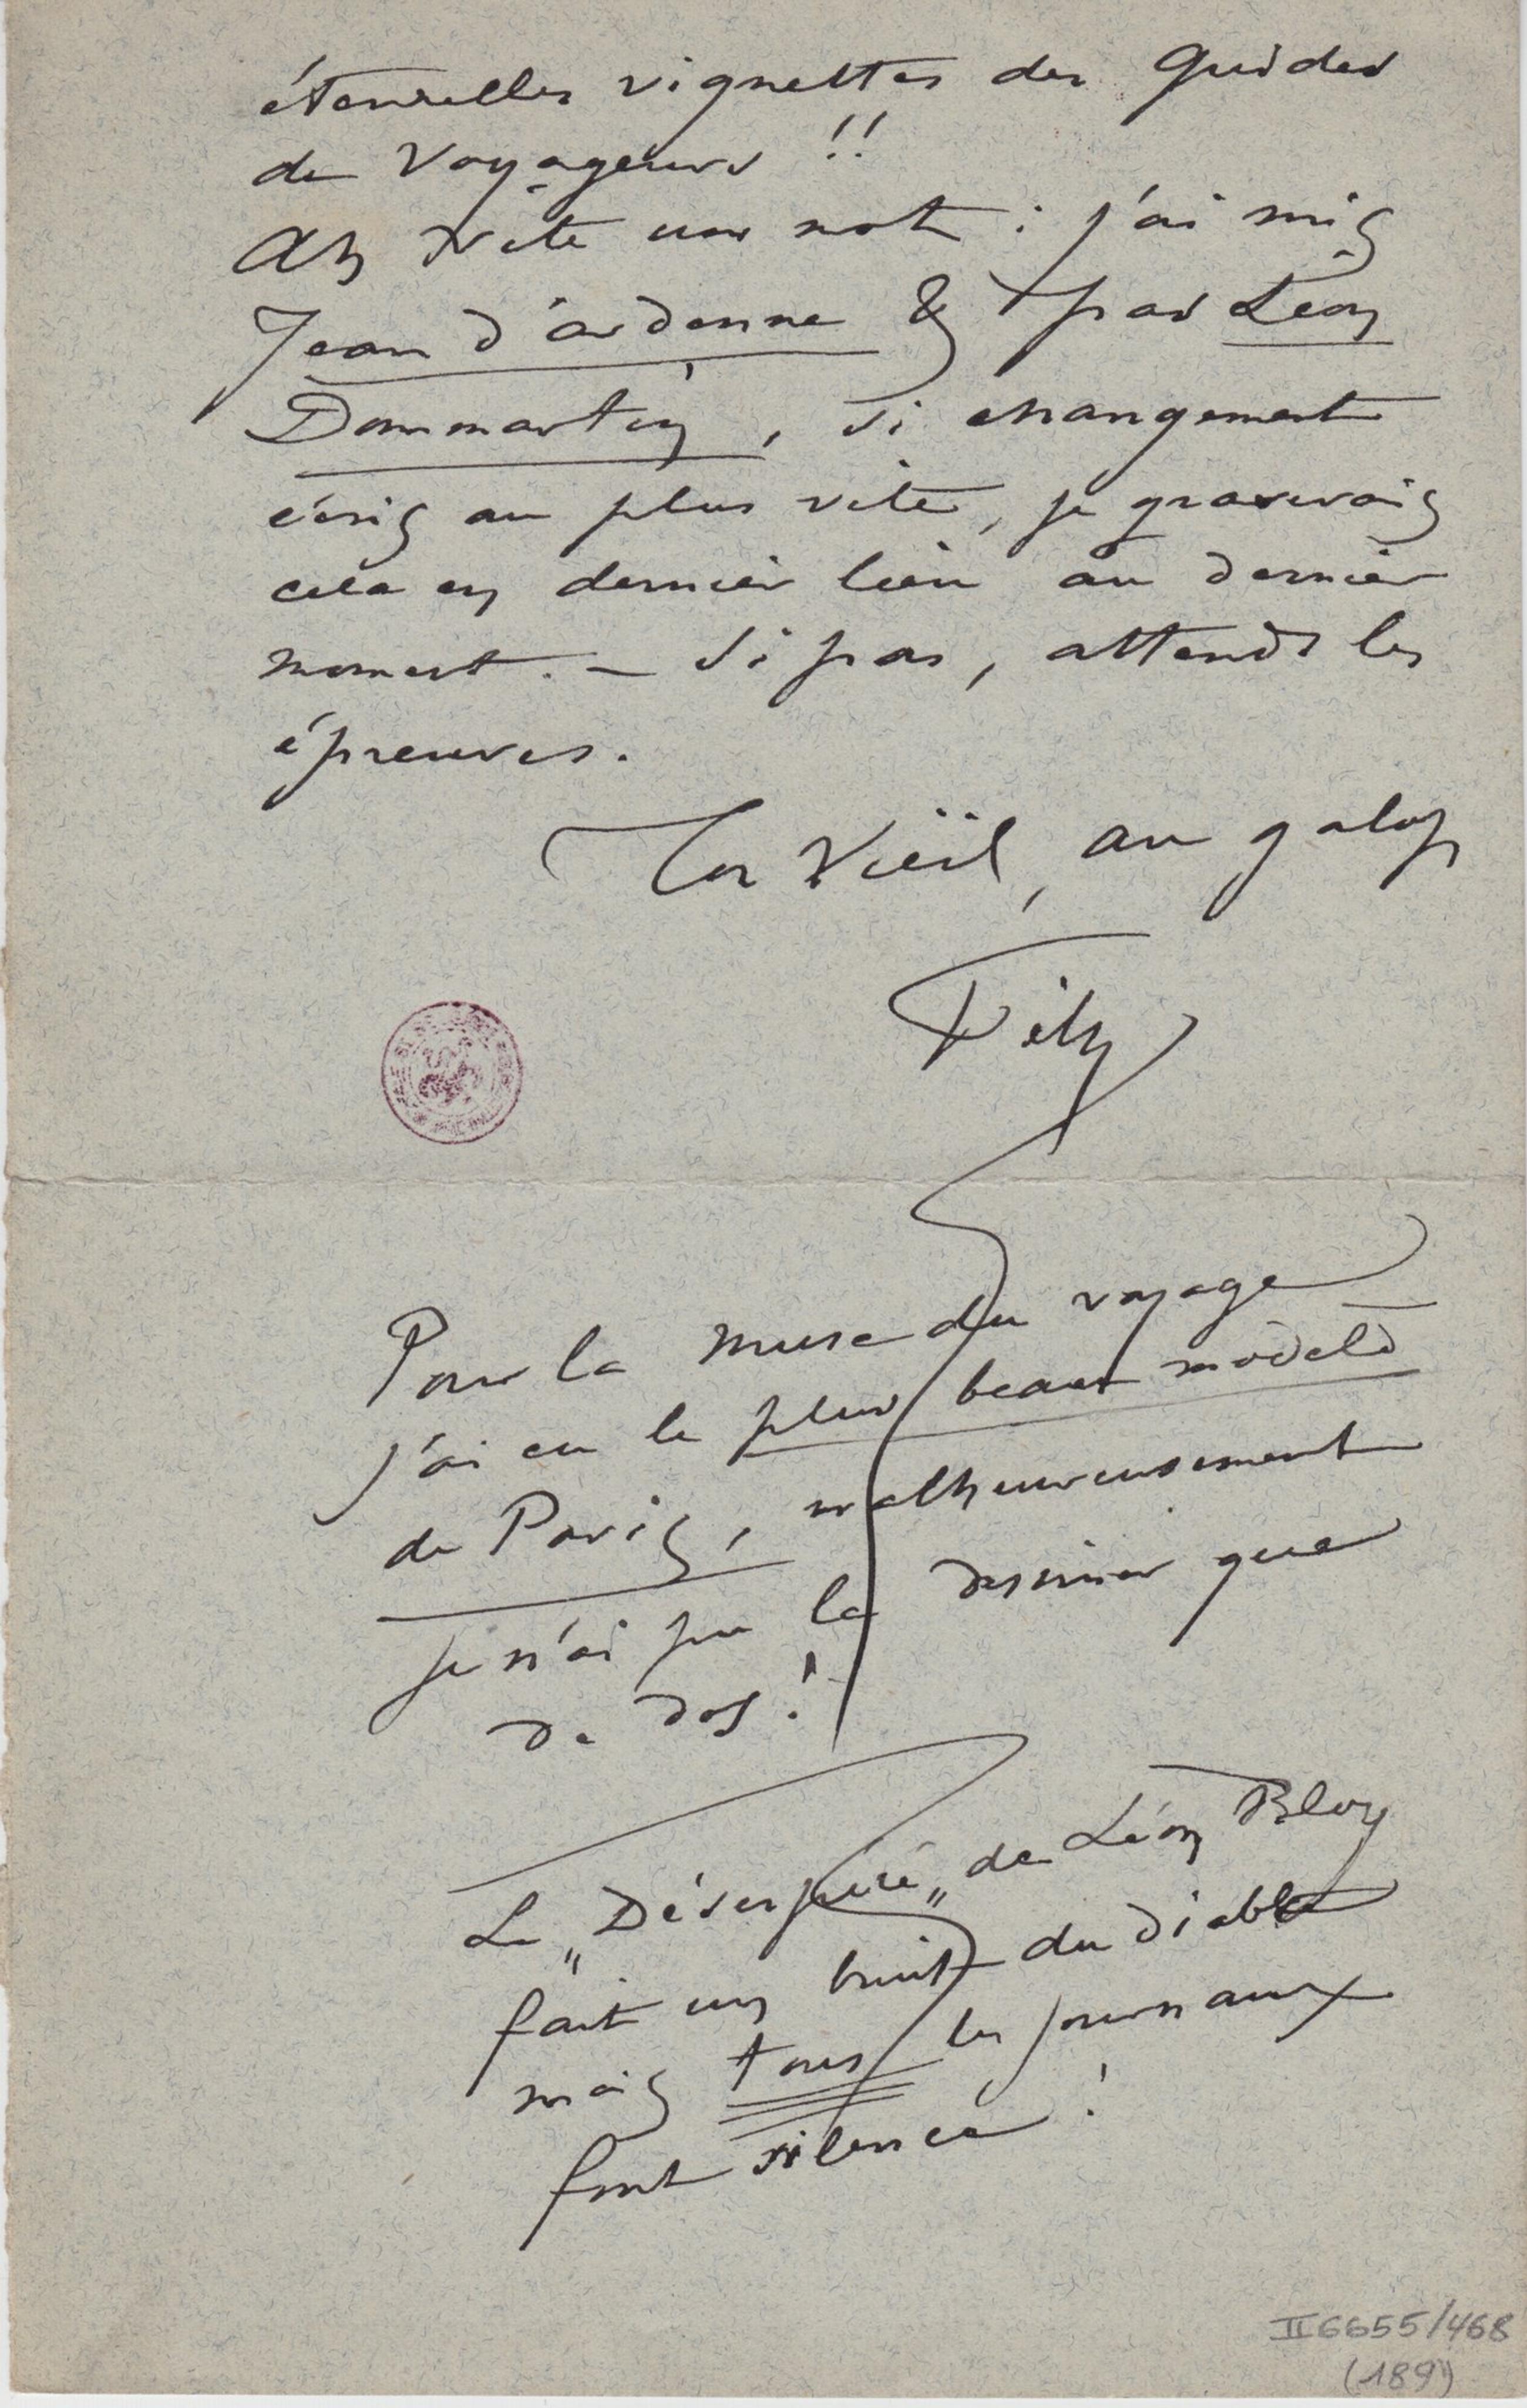 éternelles vignettes des Guides
de Voyageurs !!
Ah vite un mot : j'ai mis
Jean d'ardenne & pas Léon
Dommartin, si changement
écris au plus vite, je graverais
cela en dernier lieu au dernier
moment. – Si pas, attends les
épreuves.
Ton Vieil, au galop
Fély
Pour la muse du voyage
j'ai eu le plus beau modèle
de Paris, malheureusement
je n'ai pu la dessiner que
de dos !
Le „Désespéré„ de Léon Bloy
fait un bruit du diable
mais tous les journaux
font silence !
II 6655/468
(189)